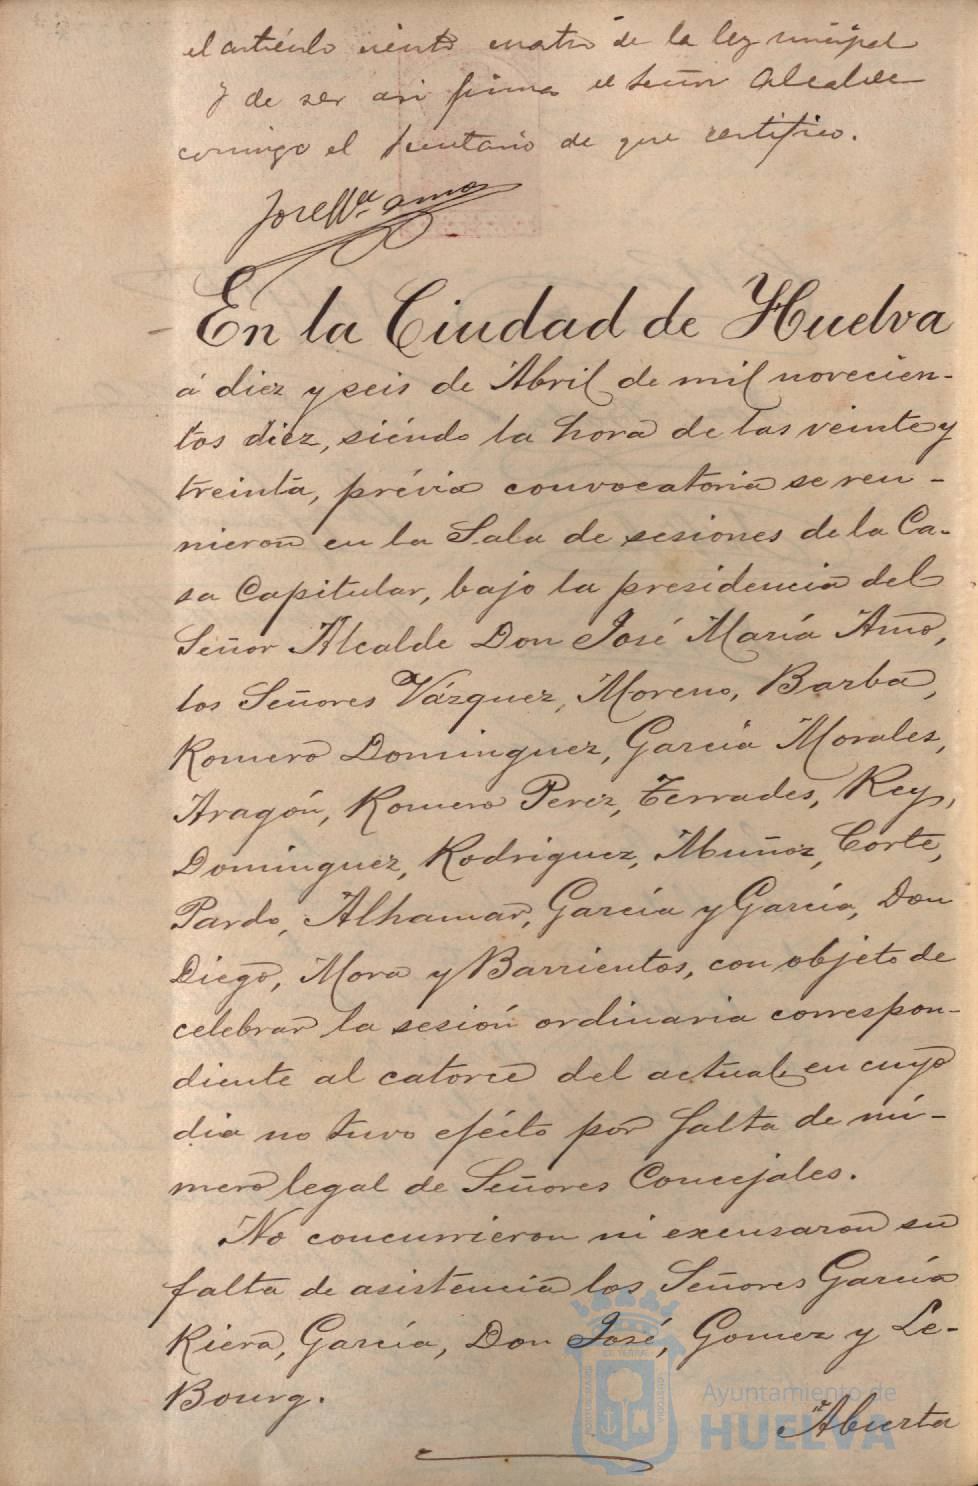 el artículo ciento cuatro de la ley municipal
y de ser asi firma el Señor Alcalde
conmigo el Secretario de que certifico.
José Mª. Amo
En la Ciudad de Huelva
á diez y seis de Abril de mil novecien-
tos diez, siéndo la hora de las veinte y
treinta, prévia convocatoria se reu-
nieron en la Sala de sesiones de la Ca-
sa Capitular, bajo la presidencia del
Señor Alcalde Don José María Amo,
los Señores Vázquez, Moreno, Barba,
Romero Dominguez, García Morales,
Aragón, Romero Perez, Terrades, Rey,
Dominguez, Rodriguez, Muñoz, Corte,
Pardo, Alhamar, García y García, Don
Diego, Mora y Barrientos, con objeto de
celebrar la sesión ordinaria correspon-
diente al catorce del actual, en cuyo
dia no tuvo efécto por falta de nú-
mero legal de Señores Concejales.
No concurrieron ni excusaron su
falta de asistencia los Señores García
Riera, García, Don José, Gomez y Le-
Bourg.
Abierta
Ayuntamiento de
HUELVA